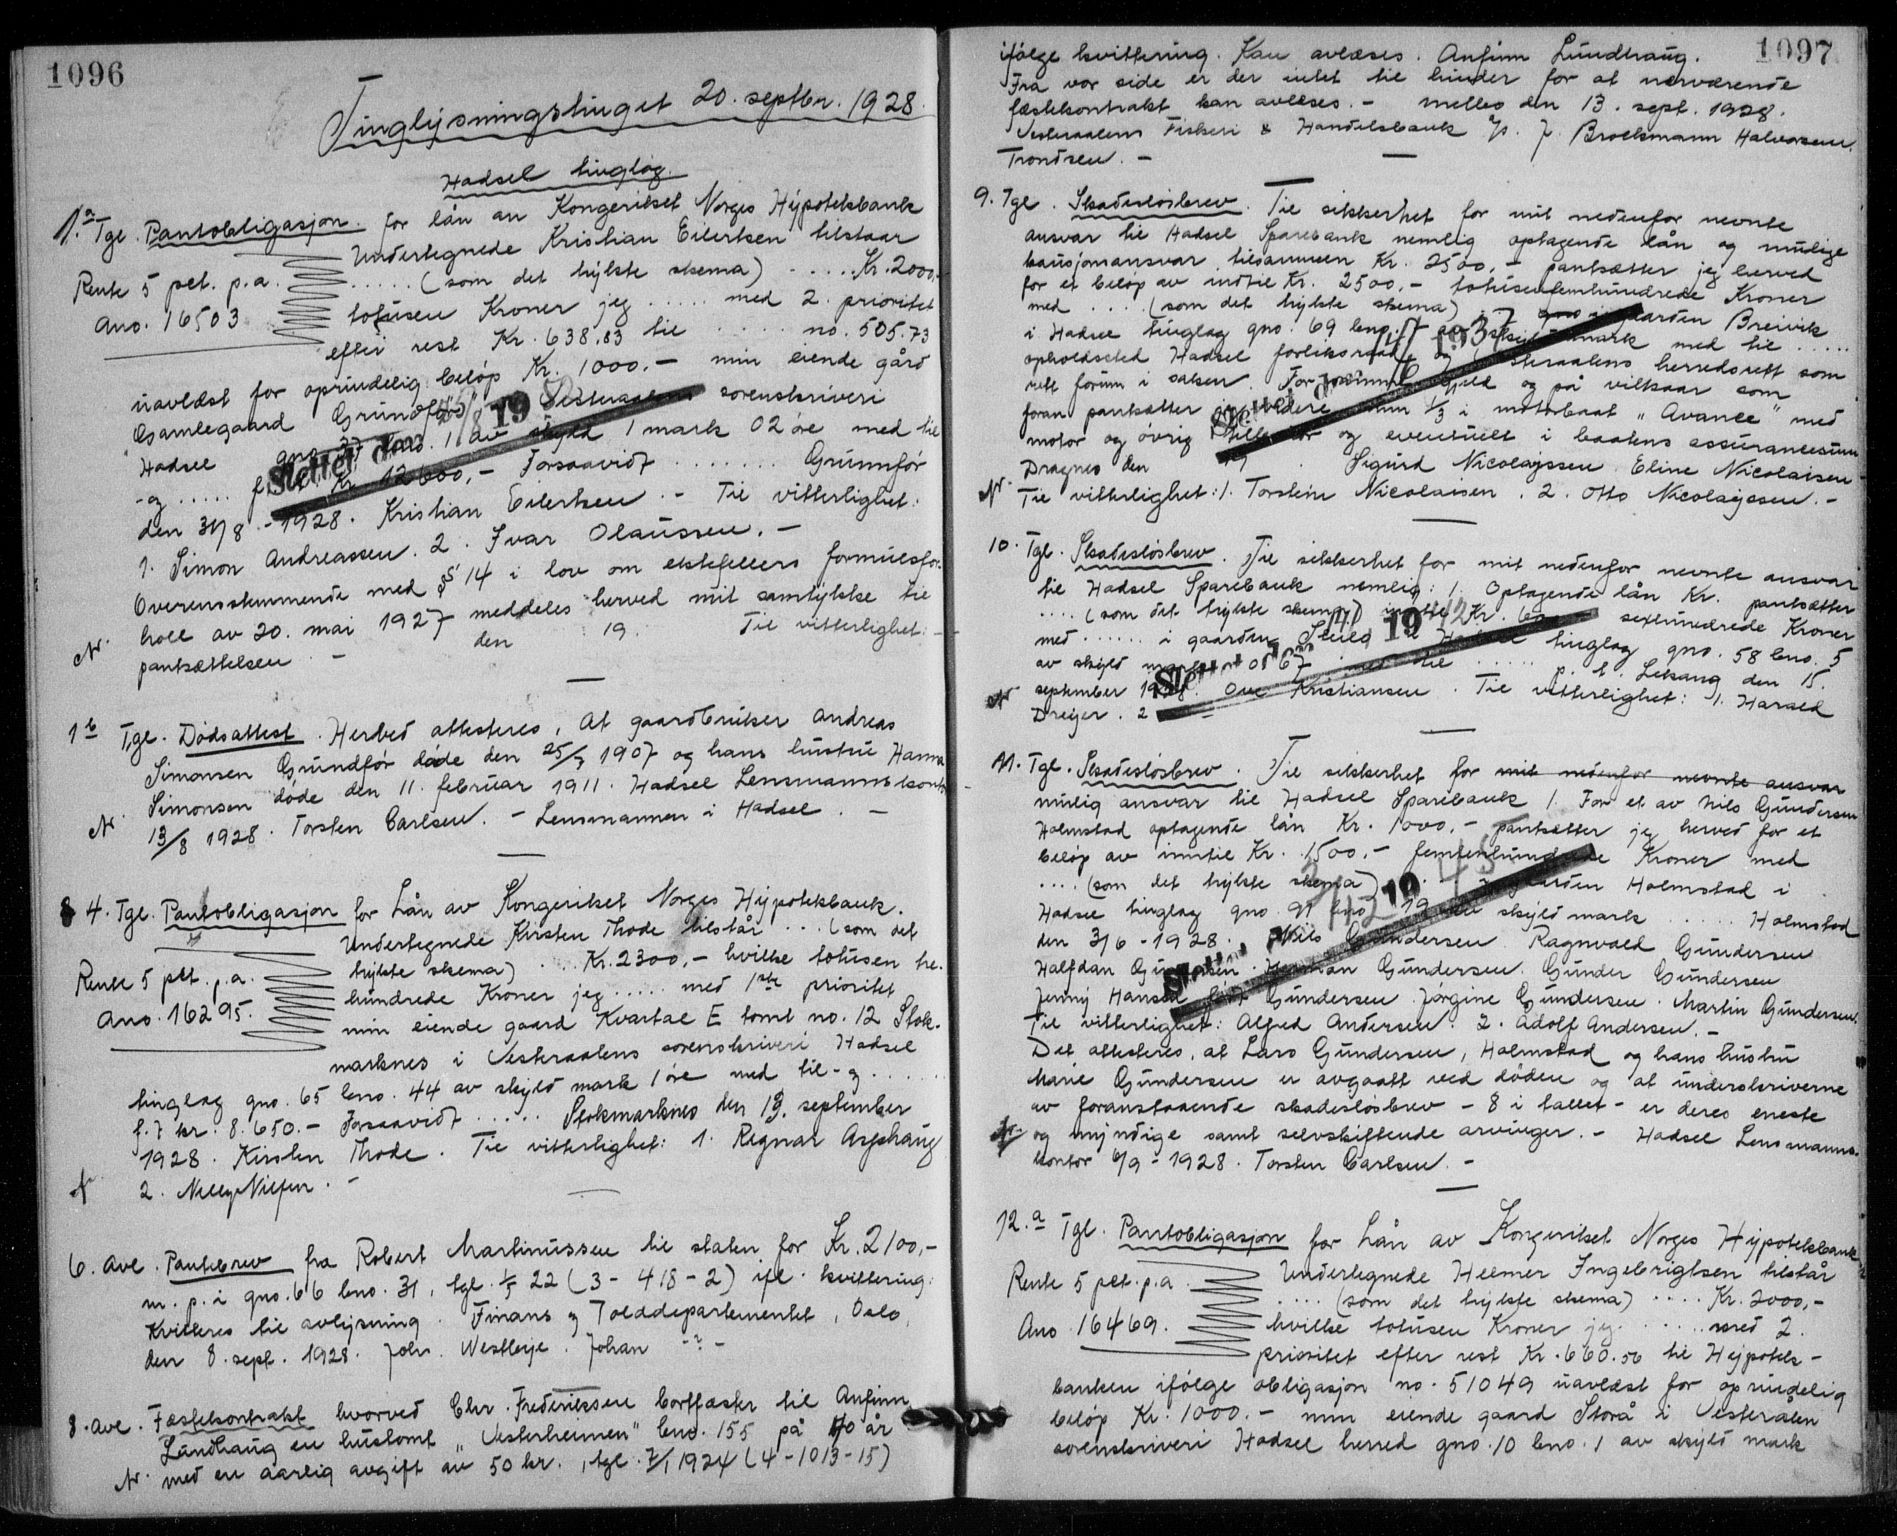 1096
Tinglysningstinget 20. septbr. 1928.
Hadsel tinglag.
1.a Tgl. Pantobligasjon for lån av Kongeriket Norges Hypotekbank
Undertegnede Kristian Eilertsen tilstaar
Rente 5 pct. p.a. ..... (som det trykte skema) ..... Kr. 2000,-
Ano. 16503 totusen Kroner jeg ..... med 2. prioritet
efter rest Kr. 638.83 til .... no. 50573
uavlæst for oprindelig beløp Kr. 1000.- min eiende gård
Gamlegaard Grundfør i Vesteraalens sorenskriveri
Hadsel gno. 37 bno. 1 av skyld 1 mark 02 øre med til
-og ..... f. 7 Kr. 12600,- Forsaavidt ....... Grunnfør
Slettet den 19
den 31/8 - 1928. Kristian Eilertsen. - Til vitterlighet:
1. Simon Andreassen. 2. Ivar Olaussen. -
Overensstemmende med § 14 i lov om ektefellers formuesfor-
hold av 20. mai 1927 meddeles herved mit samtykke til
pantsættelsen - den 19 Til vitterlighet: -
N.
1 b Tgl. Dødsattest. Herved attesteres, at gaardbruker Andreas
Simonsen Grundfør døde den 25/7 1907 og hans hustru Hanna
Simonsen døde den 11. februar 1911. Hadsel Lensmannskontor
N. 13/8 1928. Torsten Carlsen. - Lensmannen i Hadsel. -
4. Tgl. Pantobligasjon for Lån av Kongeriket Norges Hypotekbank.
Undertegnede Kirsten Thode tilstår ... (som det
Rente 5 pct. p.a. trykte skema) ... Kr. 2300,- hvilke totusen tre-
hundrede Kroner jeg ..... med 1ste prioritet
Ano. 16295. min eiende gaard Kvartal E tomt no. 12 Stok-
marknes i Vesteraalens sorenskriveri Hadsel
tinglag gno. 65 bno. 44 av skyld mark 1 øre med til - og .....
f. 7 kr. 8.650.- Forsaavidt ..... Stokmarknes den 13. september
1928. Kirsten Thode. Til vitterlighet: 1. Regnar Asphaug
2. Nelly Nilsen. -
6. Avl. Pantebrev fra Robert Martinussen til staten for Kr. 2100,-
m. p. i gno. 66 bno. 31, tgl. 1/5 22 (3 - 418 - 2) ifl. kvittering:
Kvitteres til avlysning. Finans og Tolddepartementet, Oslo,
den 8. sept. 1928. Johan -?-
8. Avl. Fæstekontrakt hvorved Chr. Frederiksen bortfæster til Anfinn
Lundhaug en hustomt „Vesterheimen" bno. 155 på 40 år
N. med en aarlig avgift av 50 kr., tgl. 7/1 1924 (4 - 1013 - 15)
1097
ifølge kvittering. Kan avlæses. Anfinn Lundhaug.
Fra vor side er der intet til hinder for at nærværende
fæstekontrakt kan avlæses. - Melbo den 13. sept. 1928.
Vesteraalens Fiskeri & Handelsbank A/S. J. Brockmann Halvorsen.
Trondsen. -
9. Tgl. Skadesløsbrev. Til sikkerhet for mit nedenfor nevnte
ansvar til Hadsel Sparebank nemlig optagende lån og mulige
kausjonsansvar tilsammen Kr. 2500,- pantsætter jeg herved
for et beløp av indtil Kr. 2500,- totusenfemhundrede Kroner
med .... (som det trykte skema) i gaarden Breivik
i Hadsel tinglag gno. 69 bno. 7 av skyld mark med til .....
opholdssted Hadsel forliksraad og Vesteraalens herredsrett som
rett forum i saken. For samme gjeld og på vilkaar som
foran pantsætter jeg videre min 1/3 i motorbaat „Avance" med
motor og øvrig tilbehør og eventuelt i baatens assurancesum
Slettet den 1937
Dragnes den 19 . Sigurd Nicolayssen. Eline Nicolaisen
N. Til vitterlighet: 1. Torstein Nicolaisen. 2. Otto Nicolaysen. -
10. Tgl. Skadesløsbrev. Til sikkerhet for mit nedenfor nevnte ansvar
til Hadsel Sparebank nemlig: 1. Optagende lån Kr. pantsætter
.... (som det trykte skema) indtil Kr. 600 sexhundrede Kroner
med ...... i gaarden i Hadsel tinglag gno. 58 bno. 5
av skyld mark 0.67 med til ..... p. t. Leksang den 15.
Slettet 1942
september 1928. Ove Kristiansen. Til vitterlighet: 1. Harald
N. Dreyer. 2
11. Tgl. Skadesløsbrev. Til sikkerhet for mit nedenfor nevnte ansvar
mulig ansvar til Hadsel Sparebank 1. For et av Nils Gundersen
Holmstad optagende lån Kr. 1000.- pantsætter jeg herved for et
beløp av inntil Kr. 1500.- femtenhundrede Kroner med
.... (som det trykte skema) i gaarden Holmstad i
Hadsel tinglag gno. 91 bno. 19 av skyld mark ..... Holmstad
Slettet 3/12 1945
den 3/6 - 1928. Nils Gundersen Ragnvald Gundersen
Halfdan Gundersen. Herman Gundersen. Gunder Gundersen
Jenny Hansen født Gundersen Jørgine Gundersen. Martin Gundersen.
Til vitterlighet: Alfred Andersen. 2. Adolf Andersen. -
Det attesteres, at Lars Gundersen, Holmstad og hans hustru
Marie Gundersen er avgaatt ved døden og at underskriverne
av foranstaaende skadesløsbrev - 8 i tallet - er deres eneste
og myndige samt selvskiftende arvinger. - Hadsel Lensmanns-
kontor 6/9 - 1928. Torsten Carlsen. -
12.a Tgl. Pantobligasjon for Lån av Kongeriket Norges Hypotekbank
Rente 5 pct. p.a. Undertegnede Helmer Ingebrigtsen tilstår
.... (som det trykte skema) ..... Kr. 2000,-
Ano 16469. hvilke totusen Kroner jeg ..... med 2.
prioritet efter rest Kr. 660.56 til Hypotek-
banken ifølge obligasjon no. 51049 uavlæst for oprindelig
beløp Kr. 1000.- min eiende gaard Storå i Vesterålen
sorenskriveri Hadsel herred gno. 10 bno. 1 av skyld mark